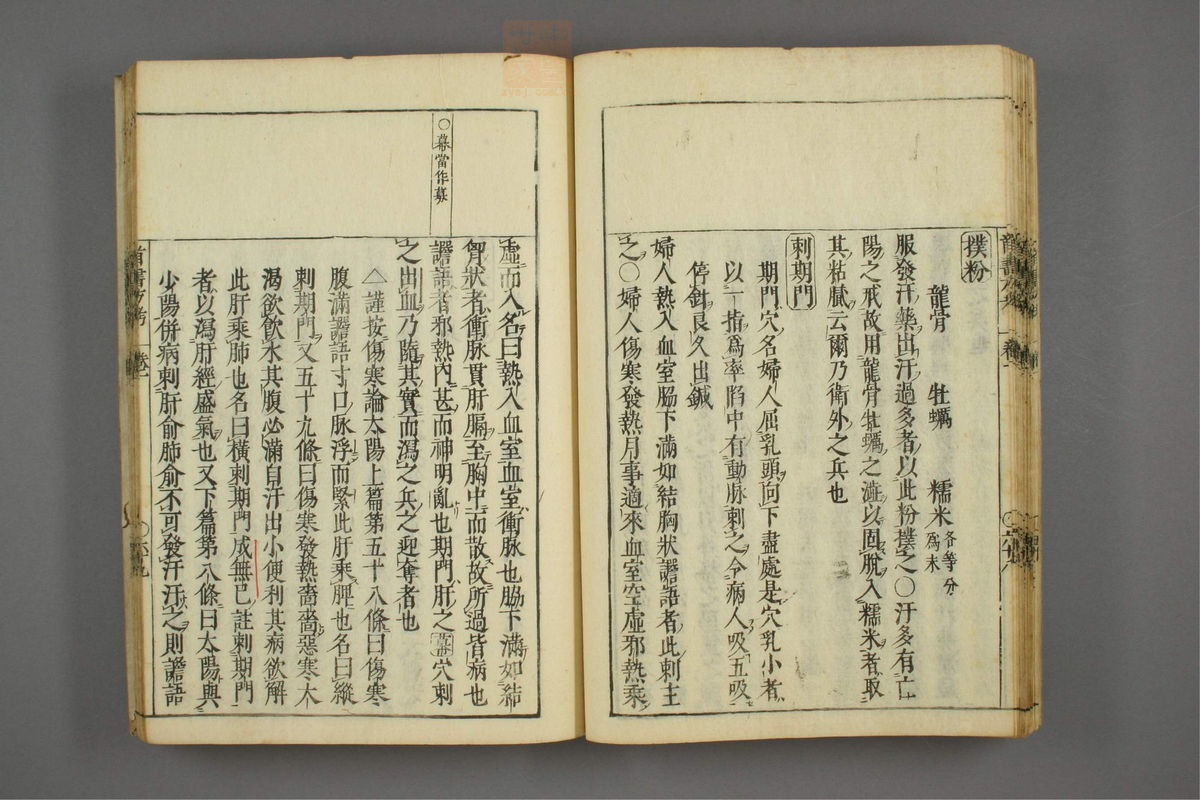 撲粉
龍骨 牡蠣 糯米各等分爲末
服發汗藥出汗過多者以此粉撲之〇汗多有亡
陽之戒故用龍骨牡蠣之澁以固脫入糯米者取
其粘膩云爾乃衛外之兵也
刺期門
期門穴名婦人屈乳頭向下盡處是穴乳小者
以一指爲率陷中有動脉刺之令病人吸五吸
停針良久出鍼
婦人熱入血室脇下滿如結胸狀譫語者此刺主
之〇婦人傷寒發熱月事適來血室空虛邪熱乘
虛而入名曰熱入血室血室衝脉也脇下滿如結
胷狀者衝脉貫肝膈至胸中而散故所過皆病也
譫語者邪熱內甚而神明亂也期門肝之幕穴刺
之出血乃隨其實而瀉之兵之迎奪者也
△謹按傷寒論太陽上篇第五十八條曰傷寒
腹滿譫語寸口脉浮而緊此肝乘脾也名曰縱
刺期門又五十九條曰傷寒發熱嗇嗇惡寒大
渴欲飮水其腹必滿自汗出小便利其病欲解
此肝乘肺也名曰橫刺期門成無已註刺期門
者以瀉肝經盛氣也又下篇第八條曰太陽與
少陽併病刺肝俞肺俞不可發汗汗之則譫語
〇幕當作募